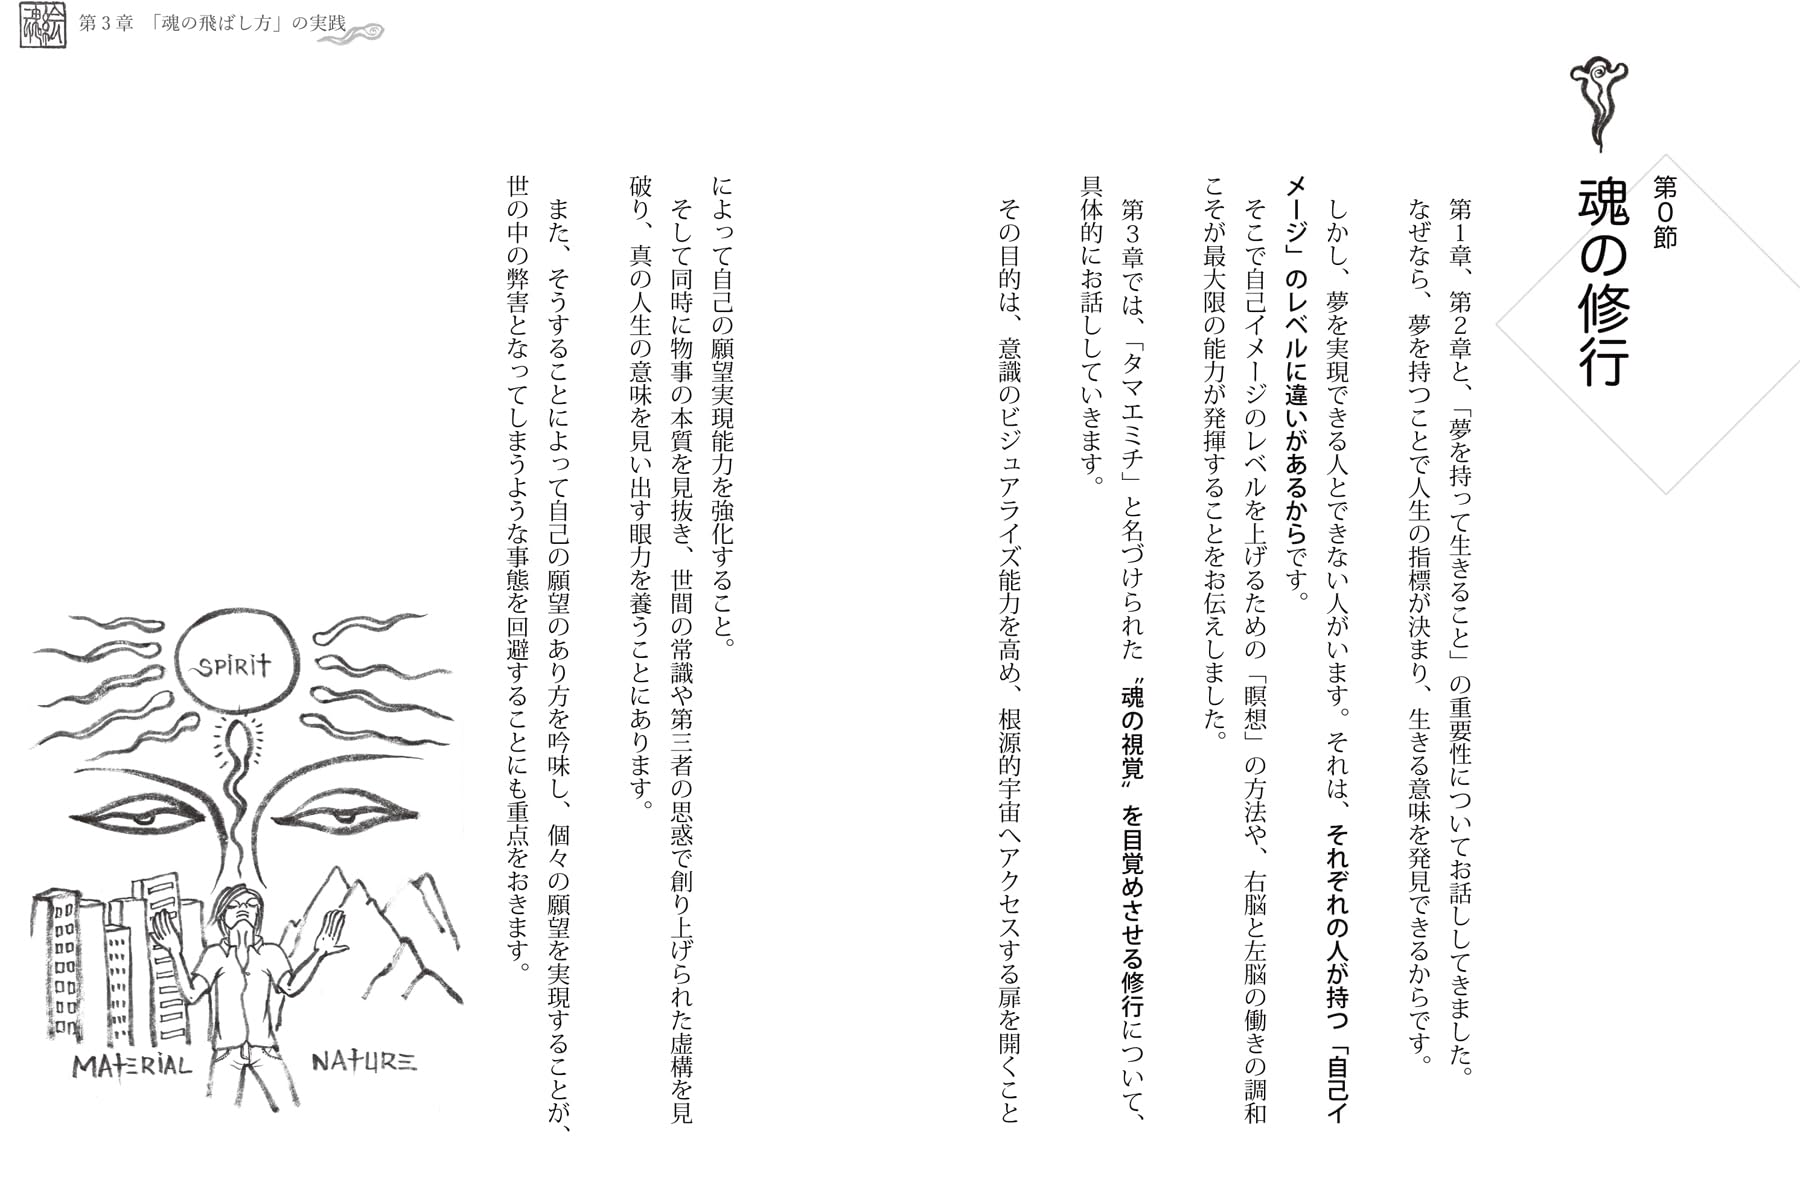 魂絵
第3章 「魂の飛ばし方」の実践
第0節
魂の修行
第1章、第2章と、「夢を持って生きること」の重要性についてお話ししてきました。
なぜなら、夢を持つことで人生の指標が決まり、生きる意味を発見できるからです。
しかし、夢を実現できる人とできない人がいます。それは、それぞれの人が持つ「自己イ
メージ」のレベルに違いがあるからです。
そこで自己イメージのレベルを上げるための「瞑想」の方法や、右脳と左脳の働きの調和
こそが最大限の能力が発揮することをお伝えしました。
第3章では、「タマエミチ」と名づけられた〝魂の視覚〟を目覚めさせる修行について、
具体的にお話ししていきます。
その目的は、意識のビジュアライズ能力を高め、根源的宇宙へアクセスする扉を開くこと
によって自己の願望実現能力を強化すること。
そして同時に物事の本質を見抜き、世間の常識や第三者の思惑で創り上げられた虚構を見
破り、真の人生の意味を見い出す眼力を養うことにあります。
また、そうすることによって自己の願望のあり方を吟味し、個々の願望を実現することが、
世の中の弊害となってしまうような事態を回避することにも重点をおきます。
SPIRIT
MATERIAL
NATURE